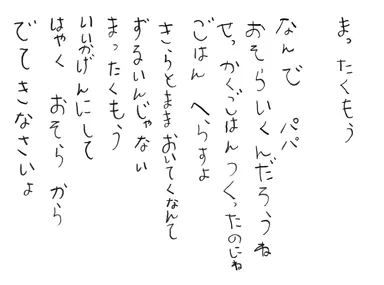 まったくもう
なんで　パパ
おそらいくんだろうね
せっかくごはんつくったのにね
ごはん　へらすよ
きらとままおいてくなんて
ずるいんじゃない
まったくもう
いいかげんにして
はやく　おそら　から
でてきなさいよ